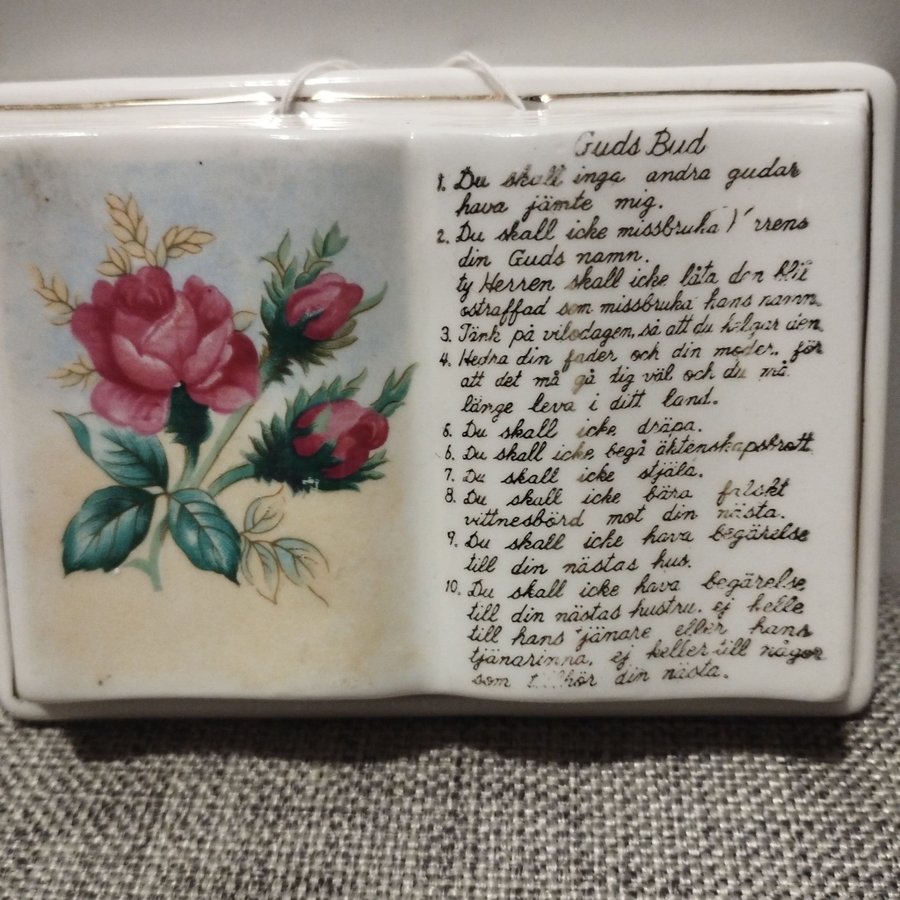 Guds Bud
1. Du skall inga andra gudar
hava jämte mig.
2. Du skall icke missbruka
din Guds namn.
ty Herren skall icke låta den bli
ostraffad som missbruka hans namn.
3. Tänk på vilodagen, så att du helgar den.
4. Hedra din fader och din moder, för
att det må gå dig väl och du må
länge leva i ditt land.
5. Du skall icke dräpa.
6. Du skall icke begå äktenskapsbrott
7. Du skall icke stjäla.
8. Du skall icke bära falskt
vittnesbörd mot din nästa.
9. Du skall icke hava begärelse
till din nästas hus.
10. Du skall icke hava begärelse
till din nästas hustru, ej helle
till hans tjänare eller hans
tjänarinna, ej heller till någor
som tillhör din nästa.